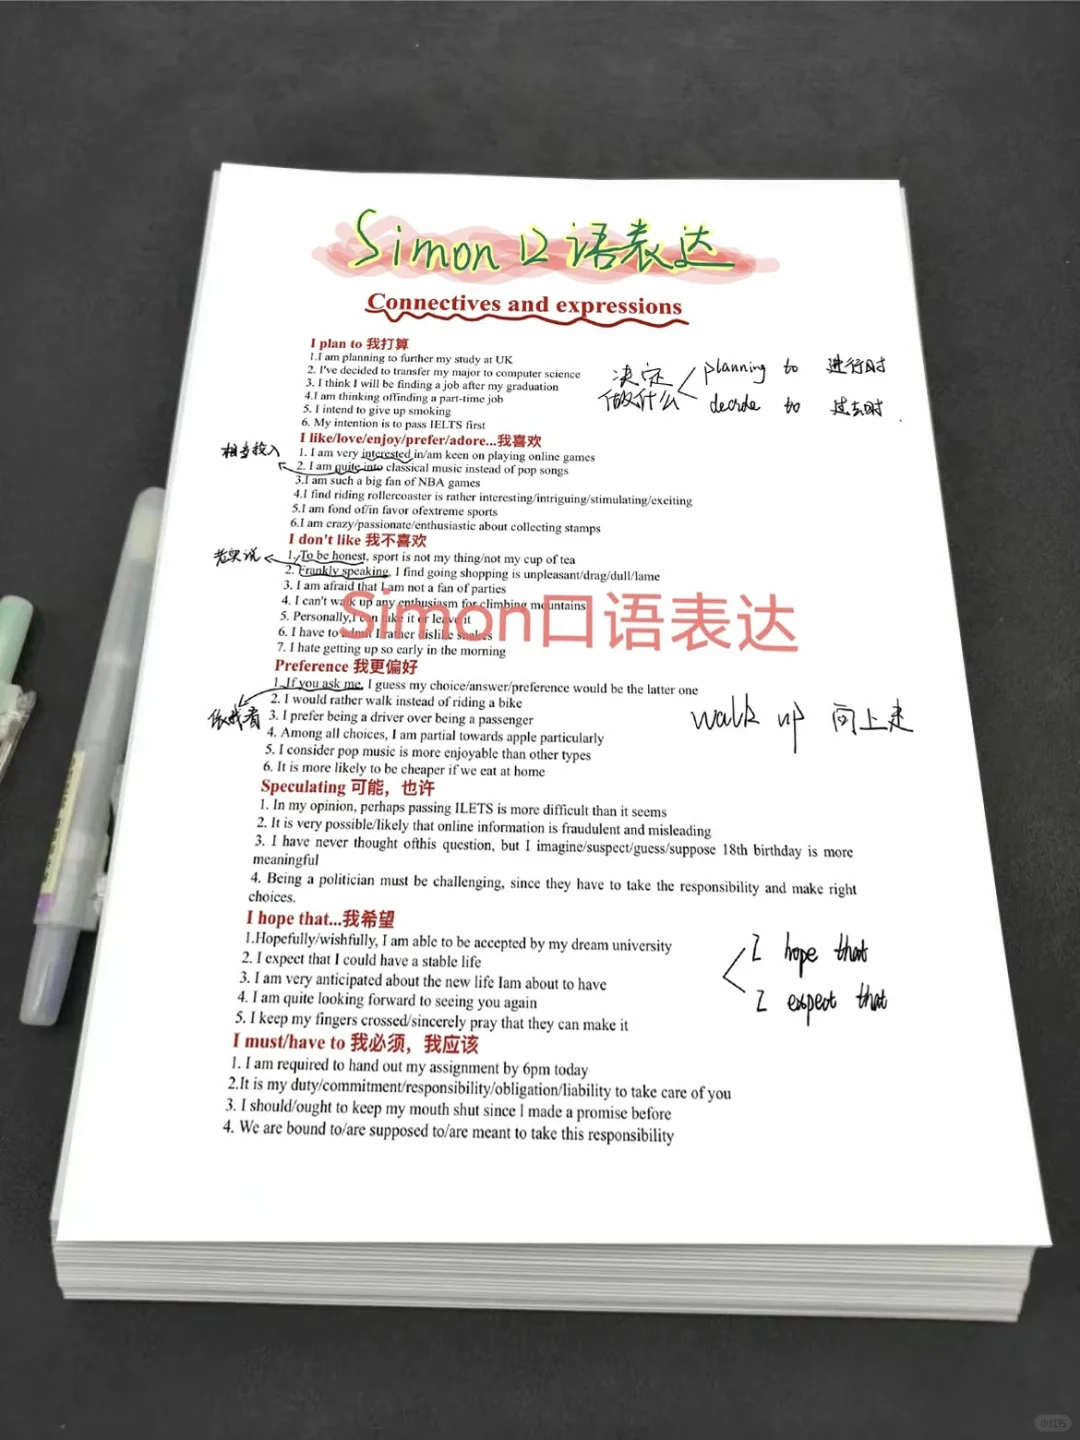 Simon口语表达
Connectives and expressions
I plan to 我打算
1.I am planning to further my study at UK
2. I've decided to transfer my major to computer science
3. I think I will be finding a job after my graduation
4.I am thinking offinding a part-time job
5. I intend to give up smoking
6. My intention is to pass IELTS first
决定
做什么
planning to 进行时
decide to 过去时
I like/love/enjoy/prefer/adore...我喜欢
1. I am very interested in/am keen on playing online games
相当投入
2. I am quite into classical music instead of pop songs
3.I am such a big fan of NBA games
4.I find riding rollercoaster is rather interesting/intriguing/stimulating/exciting
5.I am fond of/in favor ofextreme sports
6.I am crazy/passionate/enthusiastic about collecting stamps
I don't like 我不喜欢
老实说
1. To be honest, sport is not my thing/not my cup of tea
2. Frankly speaking, I find going shopping is unpleasant/drag/dull/lame
3. I am afraid that I am not a fan of parties
4. I can't walk up any enthusiasm for climbing mountains
5. Personally,I can take it or leave it
6. I have to admit I rather dislike snakes
7. I hate getting up so early in the morning
Simon口语表达
Preference 我更偏好
1. If you ask me, I guess my choice/answer/preference would be the latter one
依我看
2. I would rather walk instead of riding a bike
3. I prefer being a driver over being a passenger
4. Among all choices, I am partial towards apple particularly
5. I consider pop music is more enjoyable than other types
6. It is more likely to be cheaper if we eat at home
walk up 向上走
Speculating 可能，也许
1. In my opinion, perhaps passing ILETS is more difficult than it seems
2. It is very possible/likely that online information is fraudulent and misleading
3. I have never thought ofthis question, but I imagine/suspect/guess/suppose 18th birthday is more
meaningful
4. Being a politician must be challenging, since they have to take the responsibility and make right
choices.
I hope that...我希望
1.Hopefully/wishfully, I am able to be accepted by my dream university
2. I expect that I could have a stable life
3. I am very anticipated about the new life Iam about to have
4. I am quite looking forward to seeing you again
5. I keep my fingers crossed/sincerely pray that they can make it
I hope that
I expect that
I must/have to 我必须，我应该
1. I am required to hand out my assignment by 6pm today
2.It is my duty/commitment/responsibility/obligation/liability to take care of you
3. I should/ought to keep my mouth shut since I made a promise before
4. We are bound to/are supposed to/are meant to take this responsibility
小红书